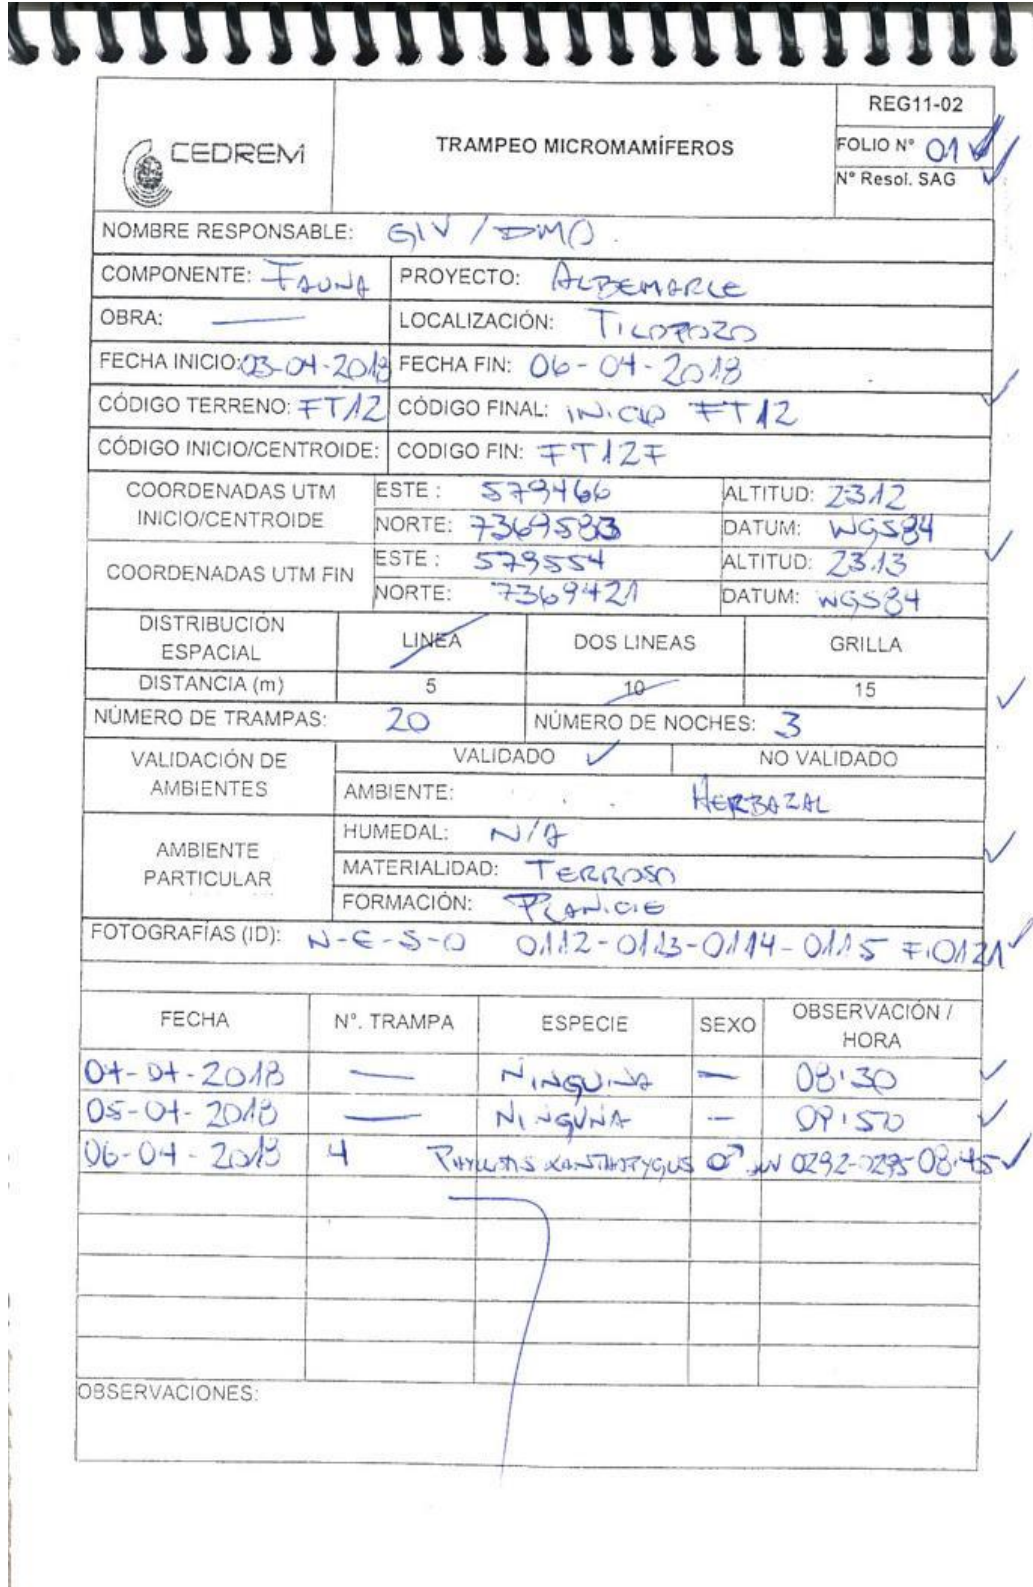 CEDREM
TRAMPEO MICROMAMÍFEROS
REG11-02
FOLIO Nº 01
Nº Resol. SAG
NOMBRE RESPONSABLE: GIV / DMO.
COMPONENTE: FAUNA PROYECTO: ALBEMARLE
OBRA: — LOCALIZACIÓN: TILOPOZO
FECHA INICIO: 03-04-2018 FECHA FIN: 06-04-2018
CÓDIGO TERRENO: FT12 CÓDIGO FINAL: INICIO FT12
CÓDIGO INICIO/CENTROIDE: CODIGO FIN: FT12F
COORDENADAS UTM INICIO/CENTROIDE ESTE: 579466 ALTITUD: 2312
NORTE: 7369583 DATUM: WGS84
COORDENADAS UTM FIN ESTE: 579554 ALTITUD: 2313
NORTE: 7369421 DATUM: WGS84
DISTRIBUCIÓN ESPACIAL LINEA DOS LINEAS GRILLA
DISTANCIA (m) 5 10 15
NÚMERO DE TRAMPAS: 20 NÚMERO DE NOCHES: 3
VALIDACIÓN DE AMBIENTES VALIDADO ✓ NO VALIDADO
AMBIENTE: HERBAZAL
AMBIENTE PARTICULAR HUMEDAL: N/A
MATERIALIDAD: TERROSO
FORMACIÓN: PLANICIE
FOTOGRAFÍAS (ID): N-E-S-O 0112-0113-0114-0115 F:0121
FECHA Nº. TRAMPA ESPECIE SEXO OBSERVACIÓN / HORA
04-04-2018 — NINGUNA — 08:30
05-04-2018 — NINGUNA — 09:50
06-04-2018 4 PHYLLOTIS XANTHOPYGUS ♂ JUV 0292-0295 08:45
OBSERVACIONES: